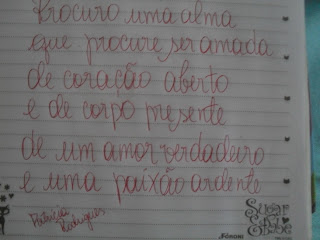 Procuro uma alma
que procure ser amada
de coração aberto
e de corpo presente
de um amor verdadeiro
e uma paixão ardente
Patrícia
Rodrigues
Sugar
FORONI